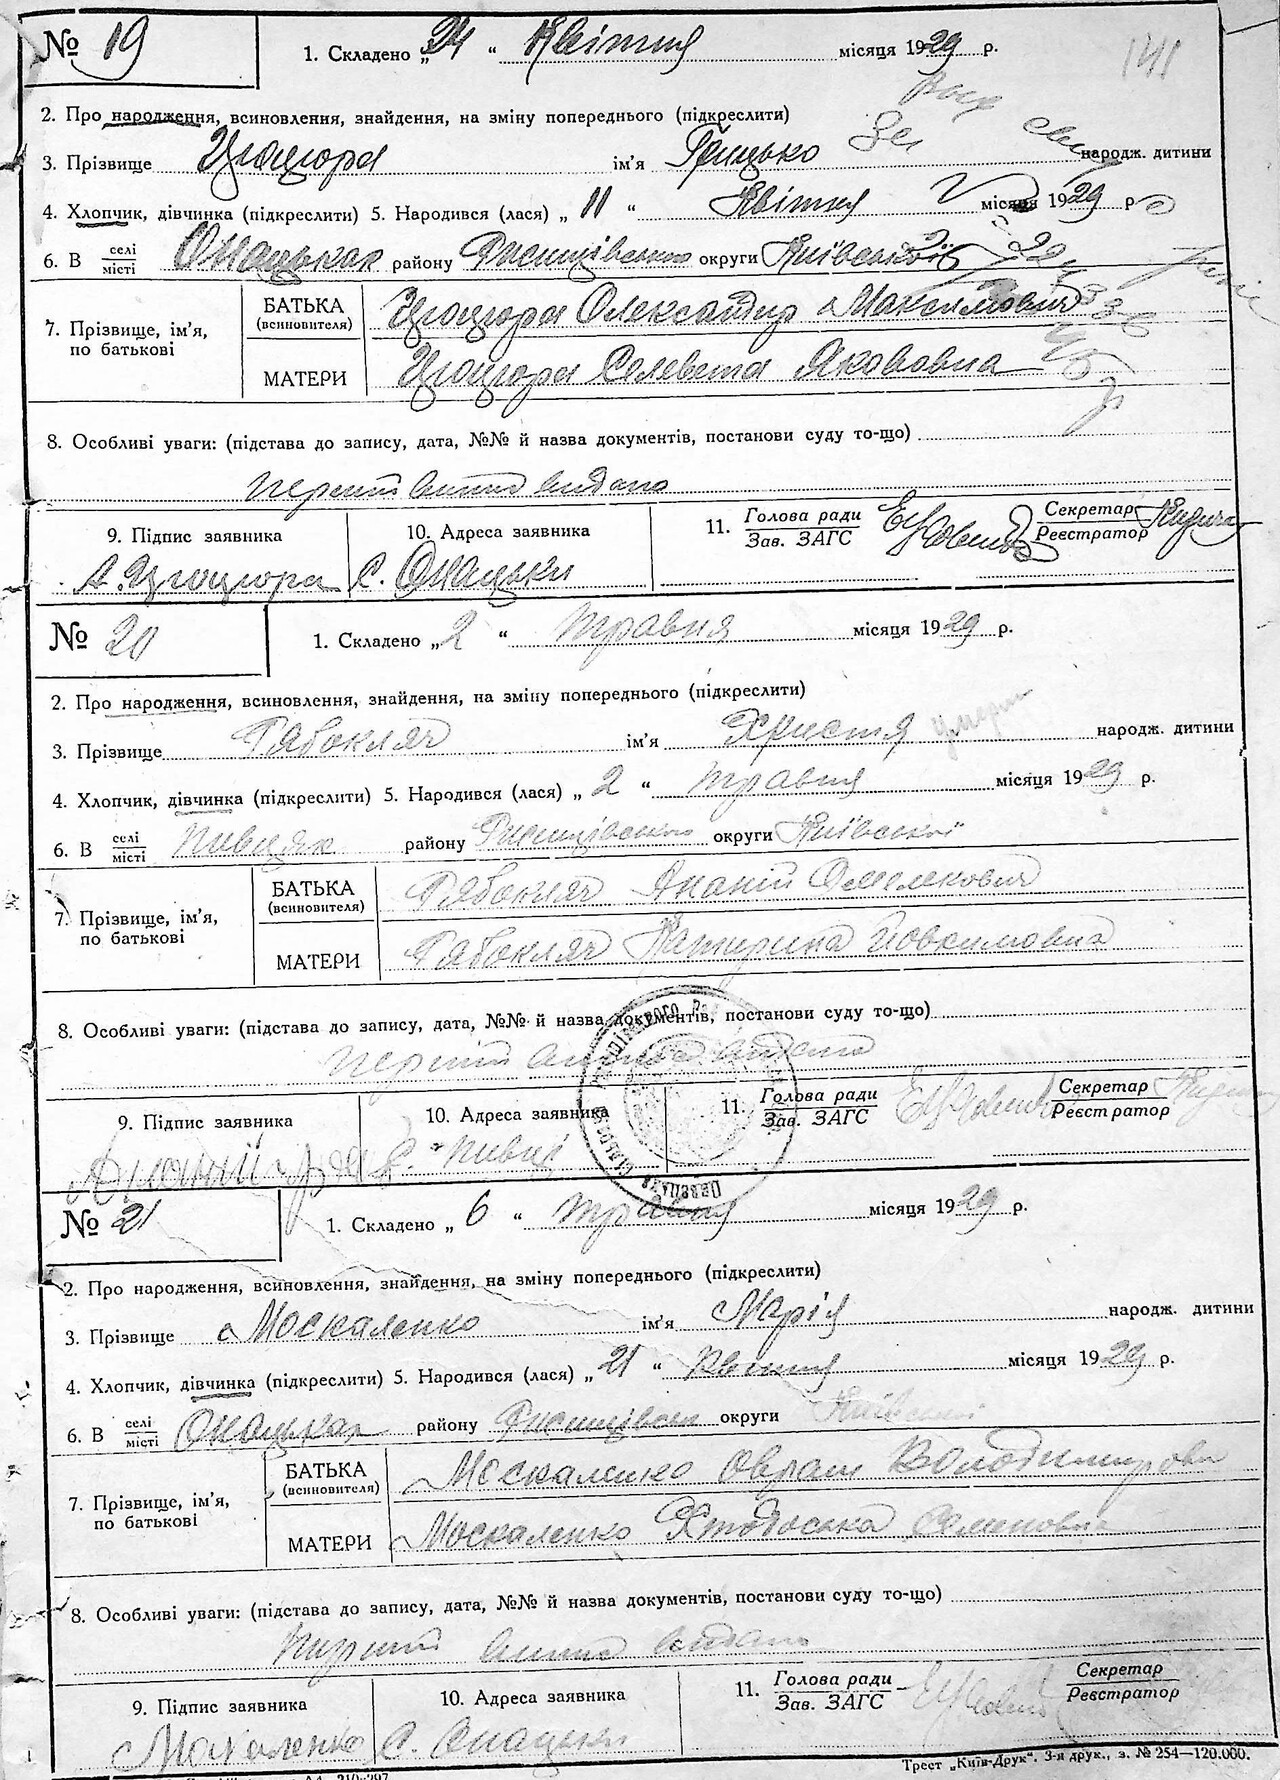 № 19 1. Складено „24 “ Квітня місяця 1929 р. 141
2. Про народження, всиновлення, знайдення, на зміну попереднього (підкреслити)
3. Прізвище Цюцюра ім'я Грицько народж. дитини
4. Хлопчик, дівчинка (підкреслити) 5. Народився (лася) „ 11 “ Квітня місяця 1929 р
6. В селі/місті Онацьках району Ржищівського округи Київської
7. Прізвище, ім'я, по батькові
БАТЬКА (всиновителя) Цюцюра Олександр Максимович
МАТЕРИ Цюцюра Селевета Яковівна
8. Особливі уваги: (підстава до запису, дата, №№ й назва документів, постанови суду то-що)
перший витяг видано
9. Підпис заявника 10. Адреса заявника 11. Голова ради/Зав. ЗАГС Секретар/Реєстратор
А. Цюцюра с. Онацьки
№ 20 1. Складено „ 2 “ травня місяця 1929 р.
2. Про народження, всиновлення, знайдення, на зміну попереднього (підкреслити)
3. Прізвище Рябокляч ім'я Христя народж. дитини
4. Хлопчик, дівчинка (підкреслити) 5. Народився (лася) „ 2 “ травня місяця 1929 р.
6. В селі/місті Півцях району Ржищівського округи Київської
7. Прізвище, ім'я, по батькові
БАТЬКА (всиновителя) Рябокляч Ананій Омелькович
МАТЕРИ Рябокляч Катерина Йовхимовна
8. Особливі уваги: (підстава до запису, дата, №№ й назва документів, постанови суду то-що)
перший витяг видано
9. Підпис заявника 10. Адреса заявника 11. Голова ради/Зав. ЗАГС Секретар/Реєстратор
Ананій с. Півці
№ 21 1. Складено „ 6 “ травня місяця 1929 р.
2. Про народження, всиновлення, знайдення, на зміну попереднього (підкреслити)
3. Прізвище Москаленко ім'я Марія народж. дитини
4. Хлопчик, дівчинка (підкреслити) 5. Народився (лася) „ 21 “ Квітня місяця 1929 р.
6. В селі/місті Онацьках району Ржищівськ округи Київської
7. Прізвище, ім'я, по батькові
БАТЬКА (всиновителя) Москаленко Оврам Володимирови
МАТЕРИ Москаленко Хтодоська Семеновна
8. Особливі уваги: (підстава до запису, дата, №№ й назва документів, постанови суду то-що)
перший витяг видано
9. Підпис заявника 10. Адреса заявника 11. Голова ради/Зав. ЗАГС Секретар/Реєстратор
Москаленко с. Онацьки
Трест „Київ-Друк“. 3-я друк., з. № 254—120.000.